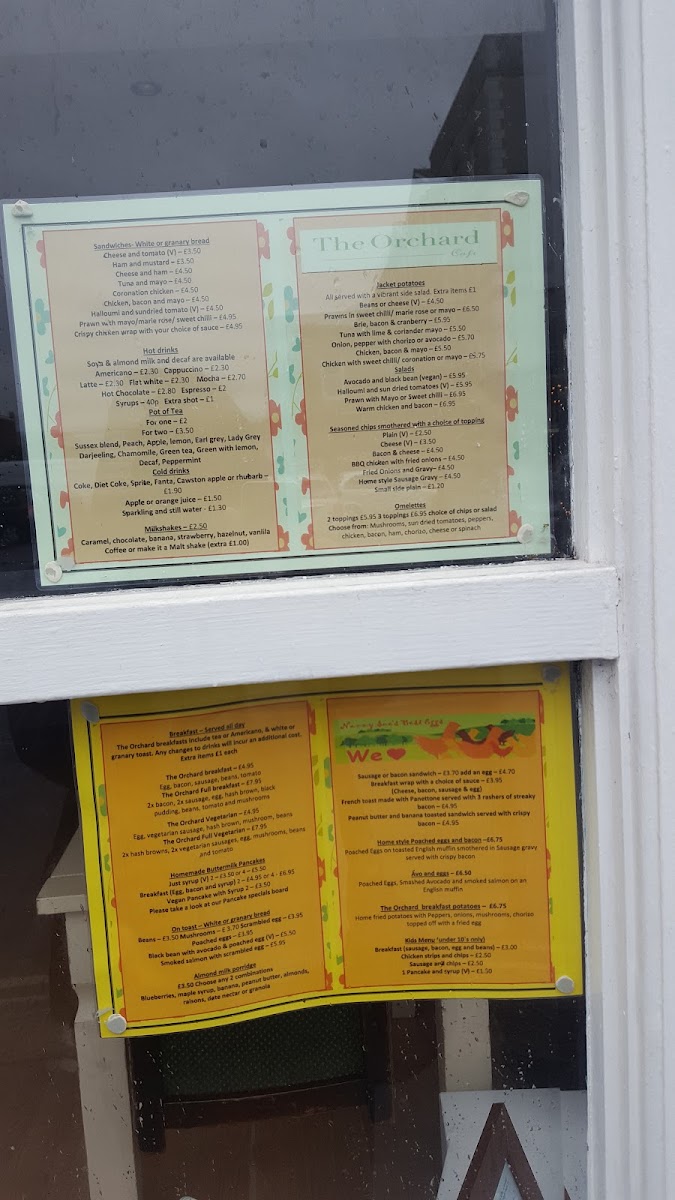 Sandwiches- White or granary bread
Cheese and tomato (V) – £3.50
Ham and mustard – £3.50
Cheese and ham – £4.50
Tuna and mayo – £4.50
Coronation chicken – £4.50
Chicken, bacon and mayo – £4.50
Halloumi and sundried tomato (V) – £4.50
Prawn with mayo/marie rose/ sweet chilli – £4.95
Crispy chicken wrap with your choice of sauce – £4.95
Hot drinks
Soya & almond milk and decaf are available
Americano – £2.30 Cappuccino – £2.30
Latte – £2.30 Flat white – £2.30 Mocha – £2.70
Hot Chocolate – £2.80 Espresso – £2
Syrups – 40p Extra shot – £1
Pot of Tea
For one – £2
For two – £3.50
Sussex blend, Peach, Apple, lemon, Earl grey, Lady Grey
Darjeeling, Chamomile, Green tea, Green with lemon,
Decaf, Peppermint
Cold drinks
Coke, Diet Coke, Sprite, Fanta, Cawston apple or rhubarb –
£1.90
Apple or orange juice – £1.50
Sparkling and still water - £1.30
Milkshakes – £2.50
Caramel, chocolate, banana, strawberry, hazelnut, vanilla
Coffee or make it a Malt shake (extra £1.00)
The Orchard
Cafe
Jacket potatoes
All served with a vibrant side salad. Extra items £1
Beans or cheese (V) – £4.50
Prawns in sweet chilli/ marie rose or mayo – £6.50
Brie, bacon & cranberry – £5.95
Tuna with lime & coriander mayo – £5.50
Onion, pepper with chorizo or avocado – £5.70
Chicken, bacon & mayo – £5.50
Chicken with sweet chilli/ coronation or mayo – £5.75
Salads
Avocado and black bean (vegan) – £5.95
Halloumi and sun dried tomatoes (V) – £5.95
Prawn with Mayo or Sweet chilli – £6.95
Warm chicken and bacon – £6.95
Seasoned chips smothered with a choice of topping
Plain (V) – £2.50
Cheese (V) – £3.50
Bacon & cheese – £4.50
BBQ chicken with fried onions – £4.50
Fried Onions and Gravy– £4.50
Home style Sausage Gravy – £4.50
Small side plain – £1.20
Omelettes
2 toppings £5.95 3 toppings £6.95 choice of chips or salad
Choose from: Mushrooms, sun dried tomatoes, peppers,
chicken, bacon, ham, chorizo, cheese or spinach
Breakfast – Served all day
The Orchard breakfasts include tea or Amarikano, & white or
granary toast. Any changes to drinks will incur an additional cost.
Extra items £1 each
The Orchard breakfast – £4.95
Egg, bacon, sausage, beans, tomato
The Orchard Full breakfast – £7.95
2x bacon, 2x sausage, egg, hash brown, black
pudding, beans, tomato and mushrooms
The Orchard Vegetarian – £4.95
Egg, vegetarian sausage, hash brown, mushroom, beans
The Orchard Full Vegetarian – £7.95
2x hash browns, 2x vegetarian sausages, egg, mushrooms, beans
and tomato
Homemade Buttermilk Pancakes
Just syrup (V) 2 – £3.50 or 4 – £5.50
Breakfast (Egg, bacon and syrup) 2 – £4.95 or 4 - £6.95
Vegan Pancake with Syrup 2 – £3.50
Please take a look at our Pancake specials board
On toast – White or granary bread
Beans – £3.50 Mushrooms – £3.70 Scrambled egg – £3.95
Poached eggs – £3.95
Black bean with avocado & poached egg (V) – £5.50
Smoked salmon with scrambled egg – £5.95
Almond milk porridge
£3.50 Choose any 2 combinations
Blueberries, maple syrup, banana, peanut butter, almonds,
raisons, date nectar or granola
Nanny Sue's Best Eggs
We
Sausage or bacon sandwich – £3.70 add an egg – £4.70
Breakfast wrap with a choice of sauce – £3.95
(Cheese, bacon, sausage & egg)
French toast made with Panettone served with 3 rashers of streaky
bacon – £4.95
Peanut butter and banana toasted sandwich served with crispy
bacon – £4.95
Home style Poached eggs and bacon –£6.75
Poached Eggs on toasted English muffin smothered in Sausage gravy
served with crispy bacon
Avo and eggs – £6.50
Poached Eggs, Smashed Avocado and smoked salmon on an
English muffin
The Orchard breakfast potatoes – £6.75
Home fried potatoes with Peppers, onions, mushrooms, chorizo
topped off with a fried egg
Kids Menu (under 10's only)
Breakfast (sausage, bacon, egg and beans) – £3.00
Chicken strips and chips – £2.50
Sausage and chips – £2.50
1 Pancake and syrup (V) – £1.50